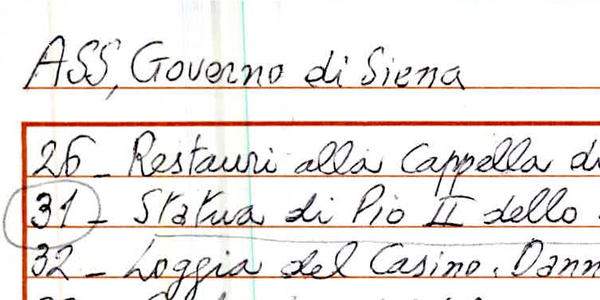 ASS, Governo di Siena
26 - Restauri alla Cappella di
31 - Statua di Pio II dello
32 - Loggia del Casino. Dann